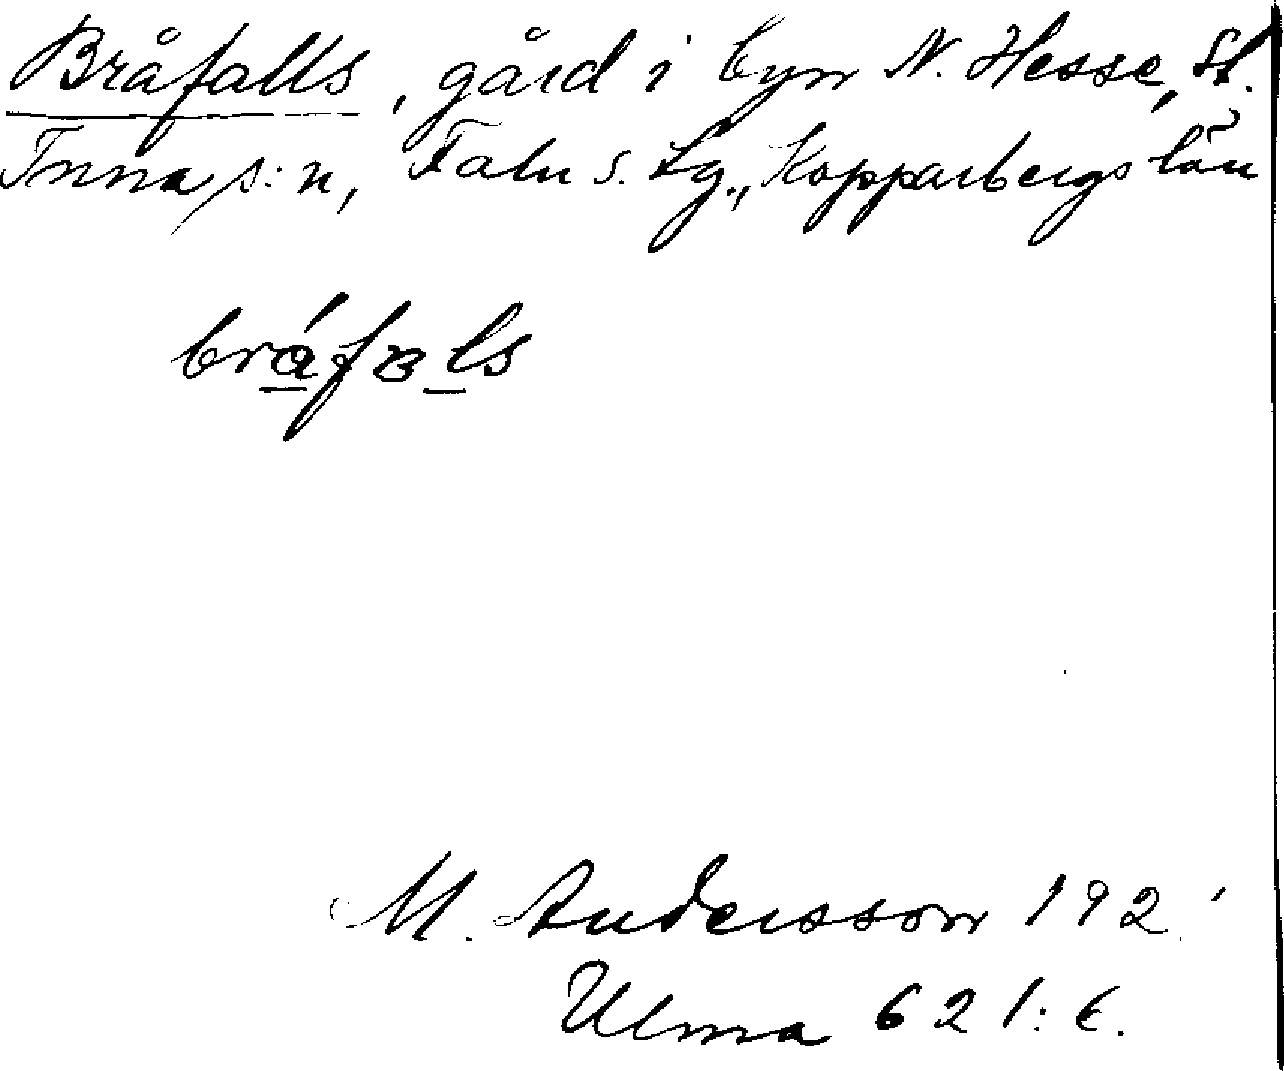 Bråfalls, gård i byn N. Hesse, St.
Tuna s:n, Falu s. Lg., Kopparbergs län
bráfals
M. Andersson 192
Ulma 621:6.